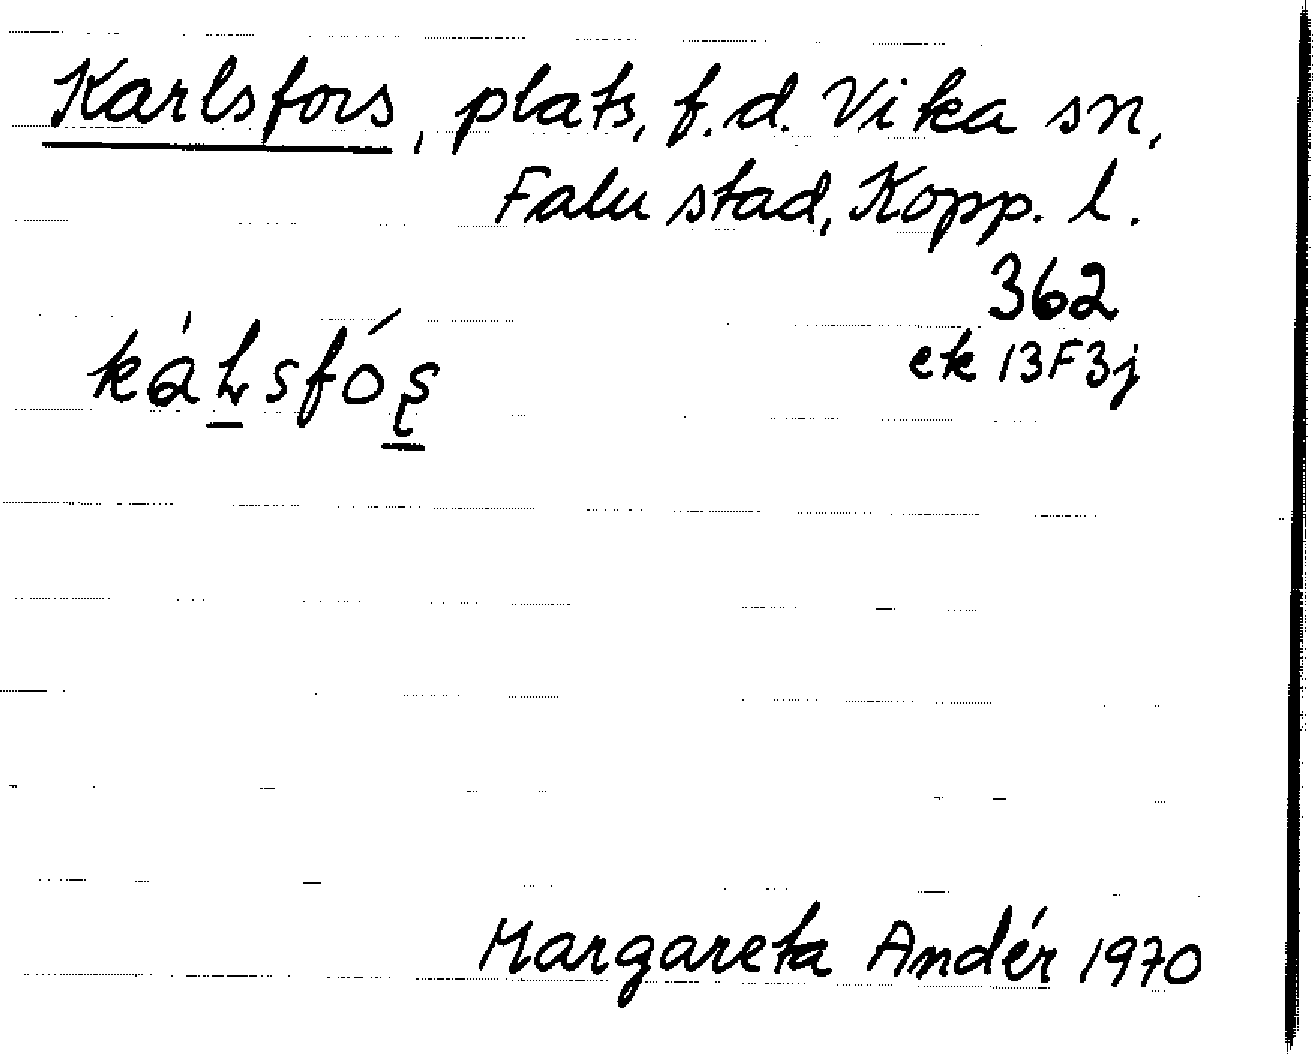 Karlsfors, plats, f.d. Vika sn,
Falu stad, Kopp. l.
362
ek 13F3j
Margareta Andér 1970